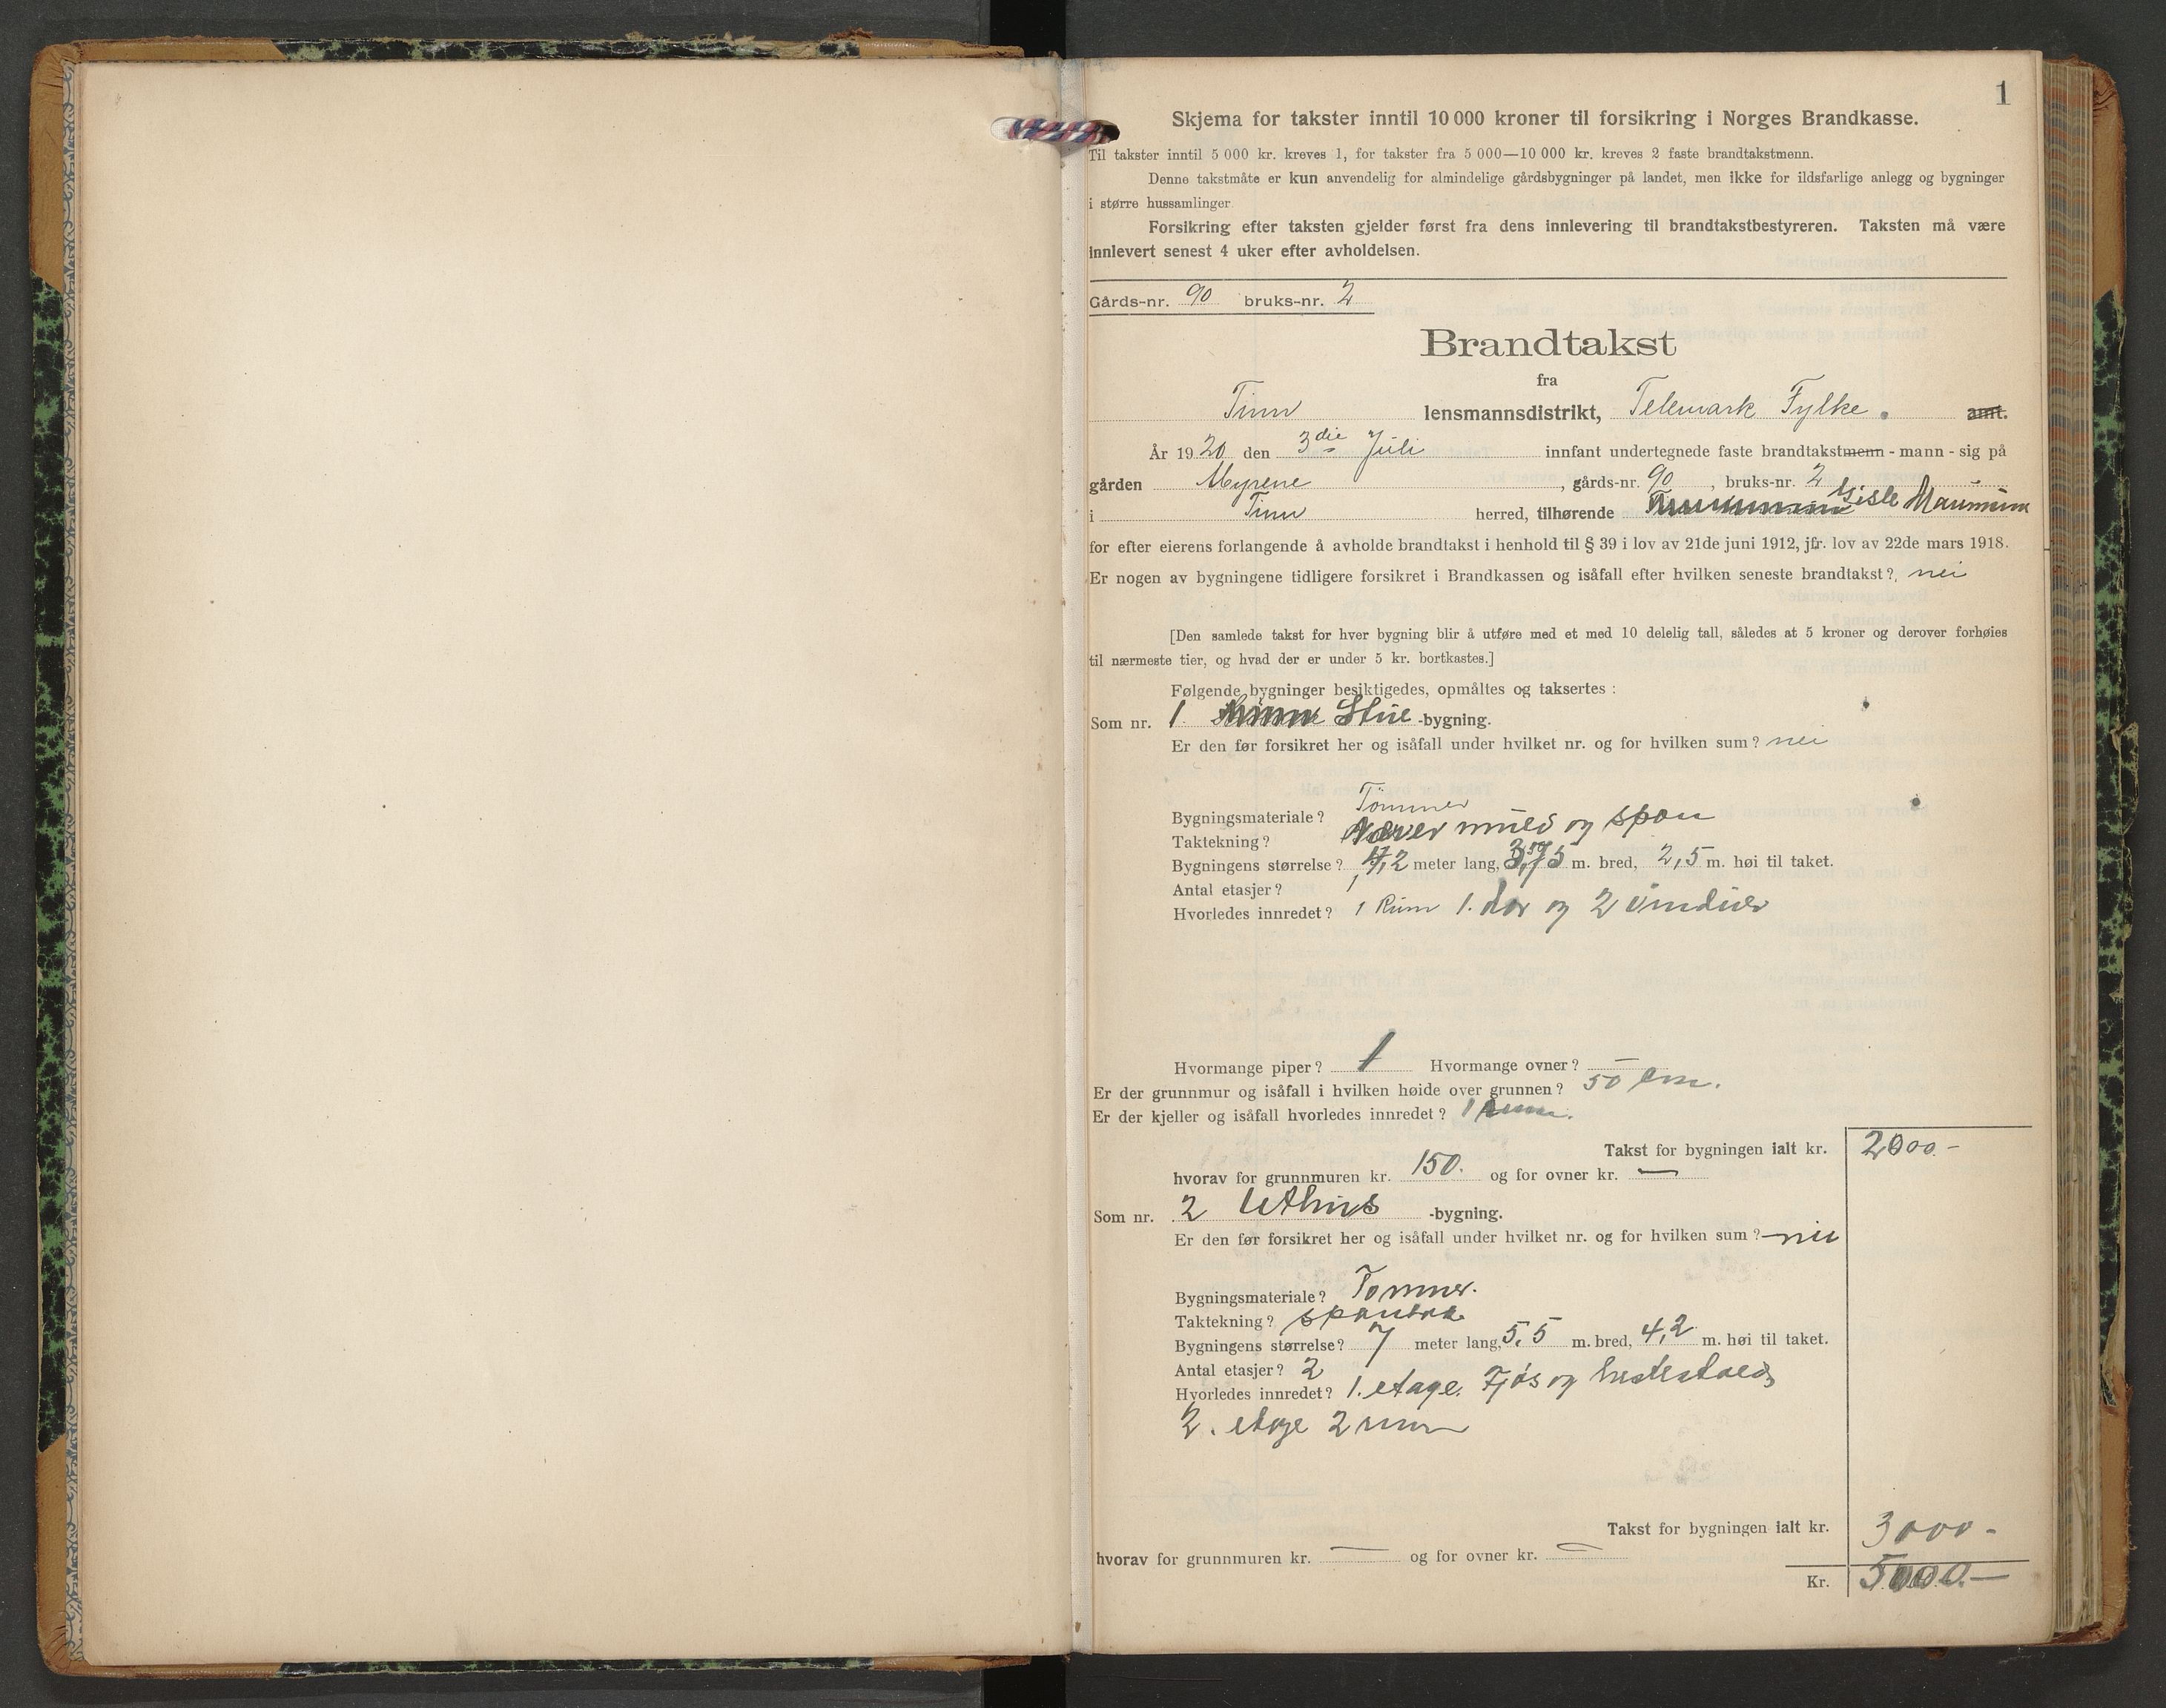 1
Skjema for takster inntil 10 000 kroner til forsikring i Norges Brandkasse.
Til takster inntil 5 000 kr. kreves 1, for takster fra 5 000—10 000 kr. kreves 2 faste brandtakstmenn.
Denne takstmåte er kun anvendelig for almindelige gårdsbygninger på landet, men ikke for ildsfarlige anlegg og bygninger
i større hussamlinger.
Forsikring efter taksten gjelder først fra dens innlevering til brandtakstbestyreren. Taksten må være
innlevert senest 4 uker efter avholdelsen.
Gårds-nr. 90 bruks-nr. 2
Brandtakst
fra
Tinn lensmannsdistrikt, Telemark Fylke. amt.
År 1920 den 3die Juli innfant undertegnede faste brandtakstmenn - mann - sig på
gården Myrene, gårds-nr. 90, bruks-nr. 2
i Tinn herred, tilhørende Gisle
for efter eierens forlangende å avholde brandtakst i henhold til § 39 i lov av 21de juni 1912, jfr. lov av 22de mars 1918.
Er nogen av bygningene tidligere forsikret i Brandkassen og isåfall efter hvilken seneste brandtakst? nei
[Den samlede takst for hver bygning blir å utføre med et med 10 delelig tall, således at 5 kroner og derover forhøies
til nærmeste tier, og hvad der er under 5 kr. bortkastes.]
Følgende bygninger besiktigedes, opmåltes og taksertes :
Som nr. 1. Stue -bygning.
Er den før forsikret her og isåfall under hvilket nr. og for hvilken sum? nei
Bygningsmateriale? Tömmer
Taktekning? Næver og spon
Bygningens størrelse? 4,2 meter lang, 3,75 m. bred, 2,5 m. høi til taket.
Antal etasjer? 1
Hvorledes innredet? 1 Rum 1. dør og 2 vinduer
Hvormange piper? 1 Hvormange ovner? —
Er der grunnmur og isåfall i hvilken høide over grunnen? 50 cm.
Er der kjeller og isåfall hvorledes innredet? 1 rum.
Takst for bygningen ialt kr. 2000.-
hvorav for grunnmuren kr. 150. og for ovner kr. —
Som nr. 2 Uthus -bygning.
Er den før forsikret her og isåfall under hvilket nr. og for hvilken sum? nei
Bygningsmateriale? Tømmer.
Taktekning? spontak
Bygningens størrelse? 7 meter lang, 5,5 m. bred, 4,2 m. høi til taket.
Antal etasjer? 2
Hvorledes innredet? 1. etage. Fjös og hestestald,
2. etage 2 rum
Takst for bygningen ialt kr. 3000-
hvorav for grunnmuren kr. — og for ovner kr. —
Kr. 5000.—